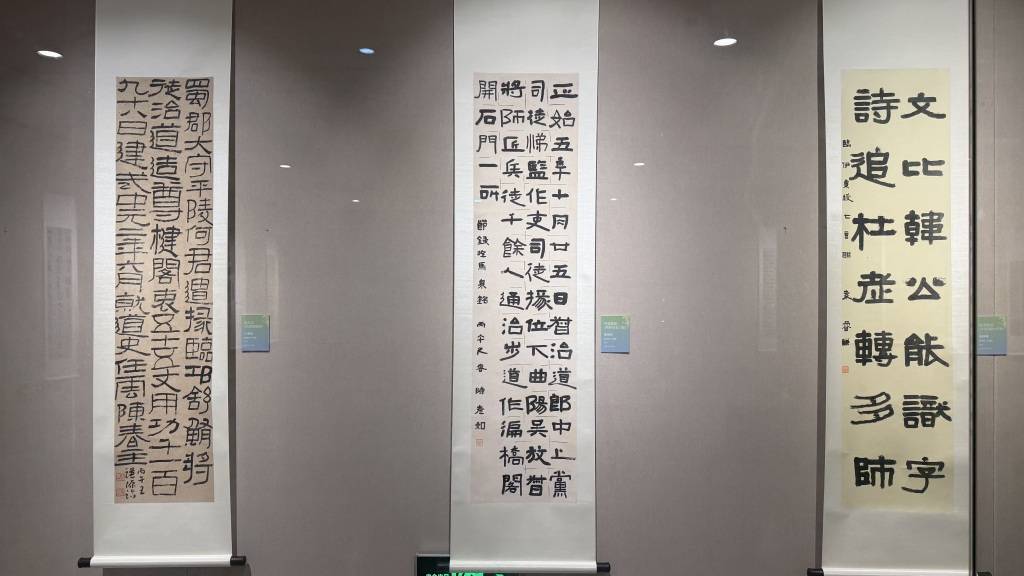 蜀郡大守平陵何君遣掾臨邛舒鮪將
徒治道造尊楗閣袤五十五丈用功千一百
九十八日建武中元二年六月就道史任雲陳春主
丙午
正始五年十月廿五日督治道郎中上黨
司徒悌監作吏司徒掾位下曲陽吳放督
將師匠兵徒千餘人通治步道作徧橋閣
開石門一所
丙午
文比韓公能識字
詩追杜老轉多師
臨伊秉綬七言聯